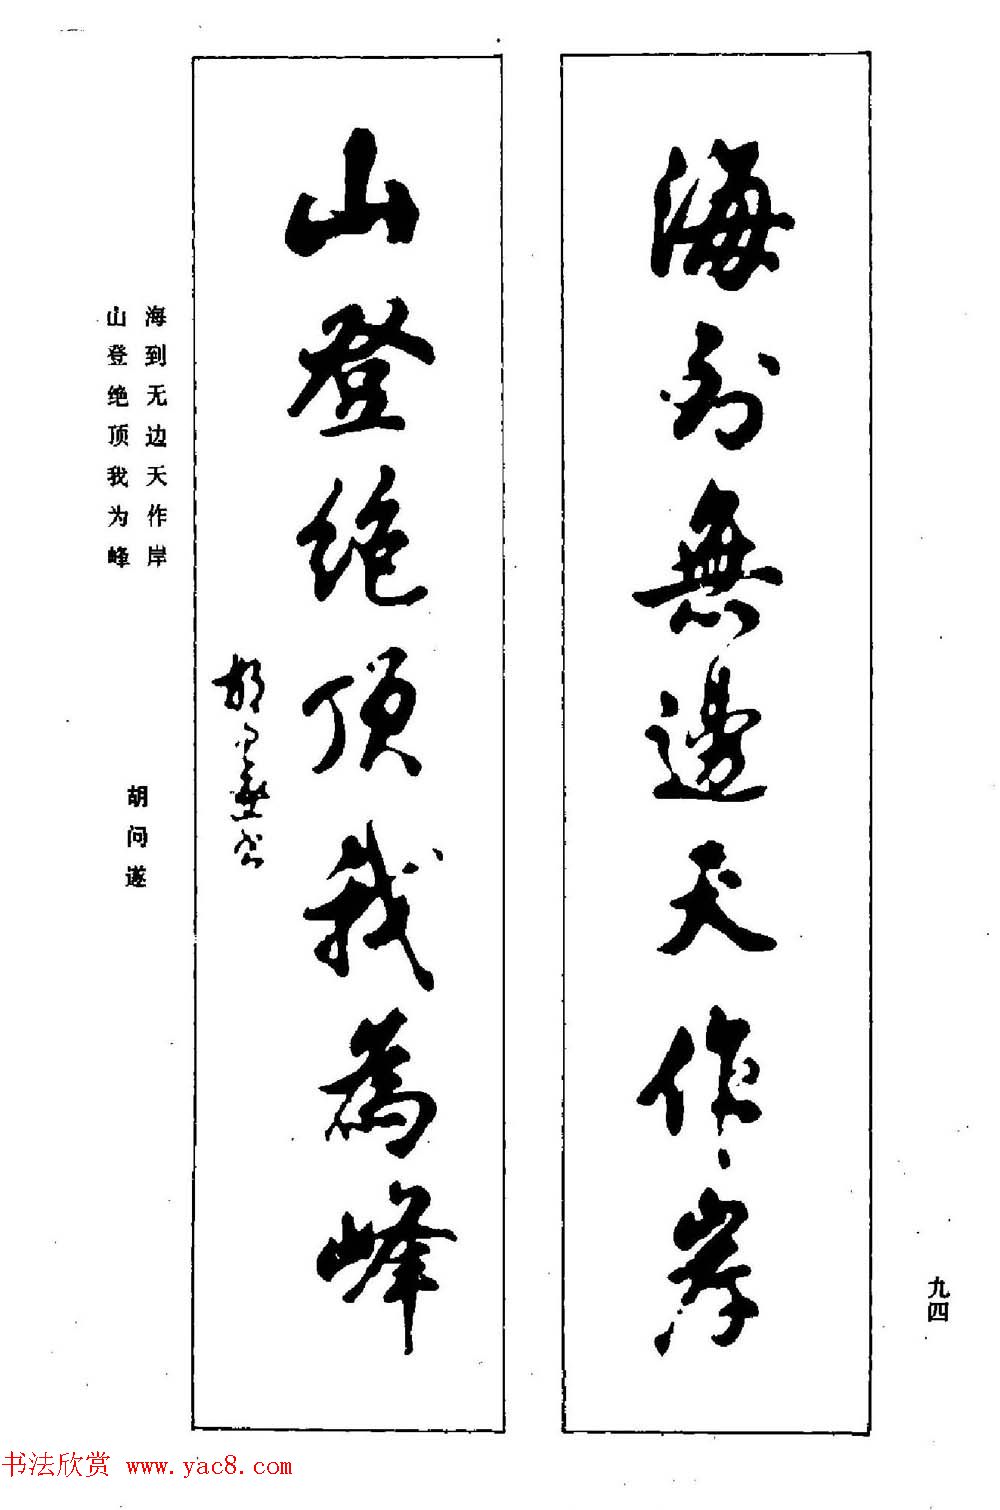 海到無邊天作岸
山登绝顶我為峰
胡问遂书
海到无边天作岸
山登绝顶我为峰
胡问遂
九四
书法欣赏 www.yac8.com